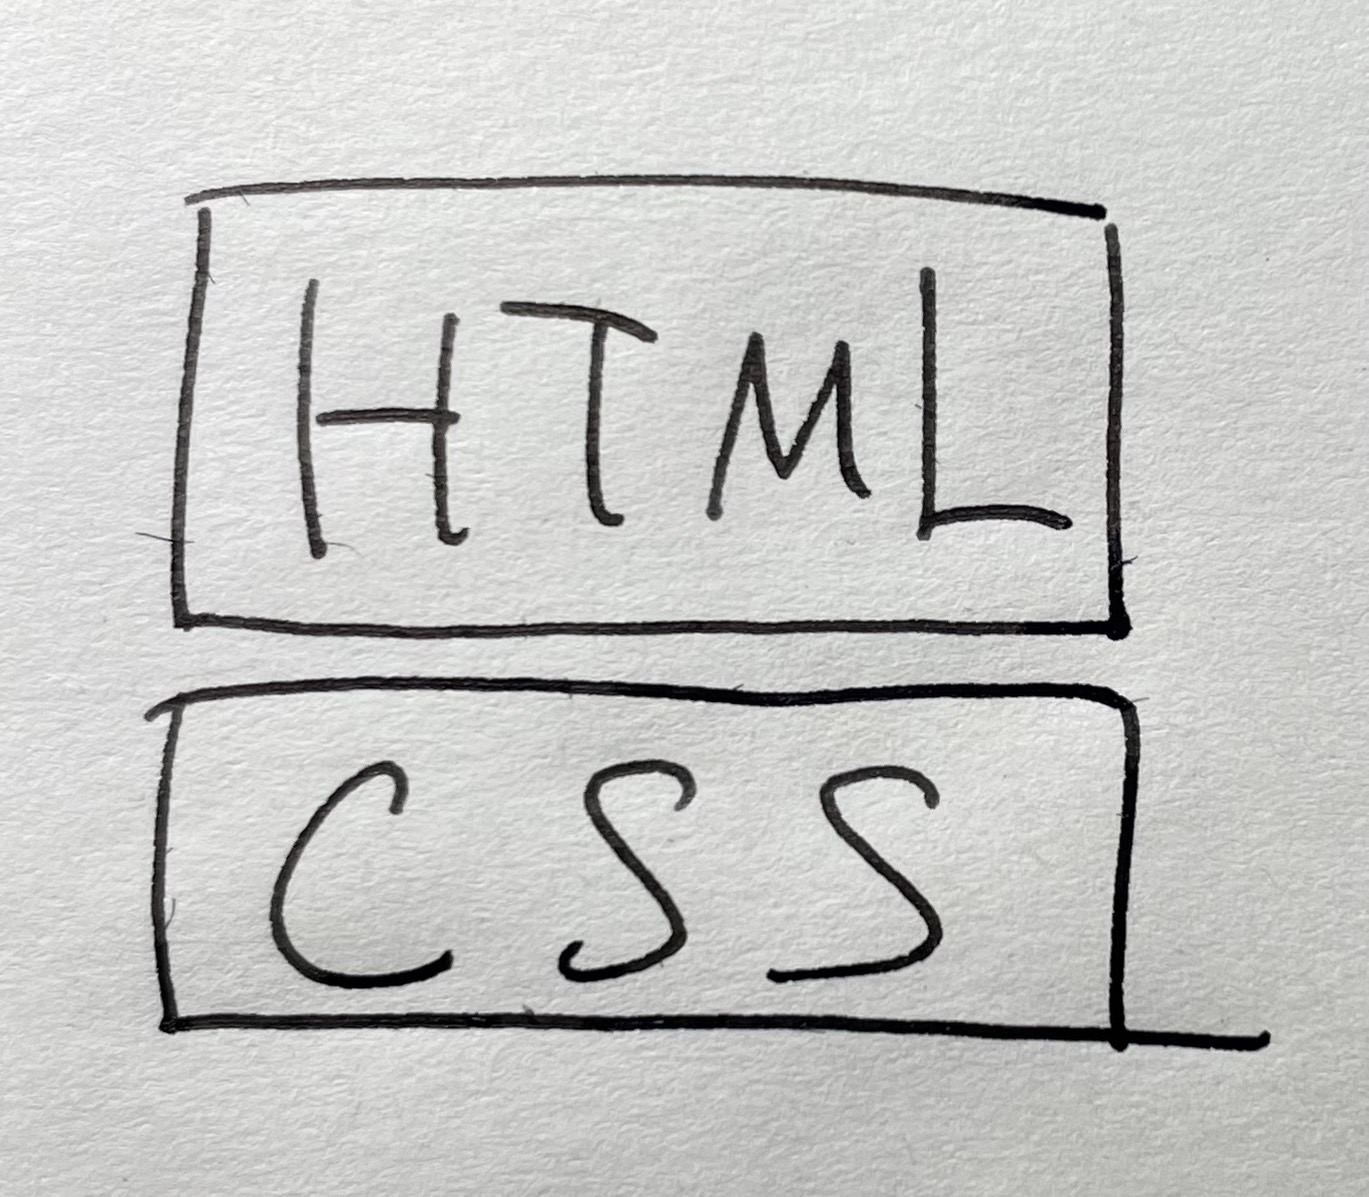 HTML
CSS